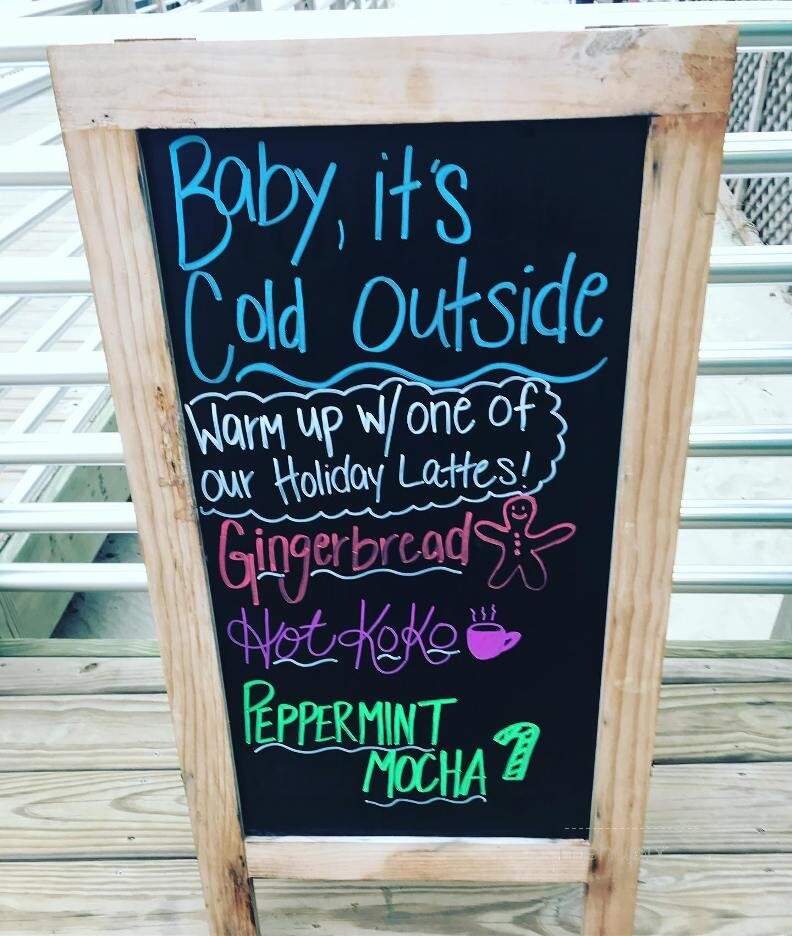 Baby, it's
Cold Outside
Warm up w/ one of
our Holiday Lattes!
Gingerbread
Hot KoKo
PEPPERMINT
MOCHA